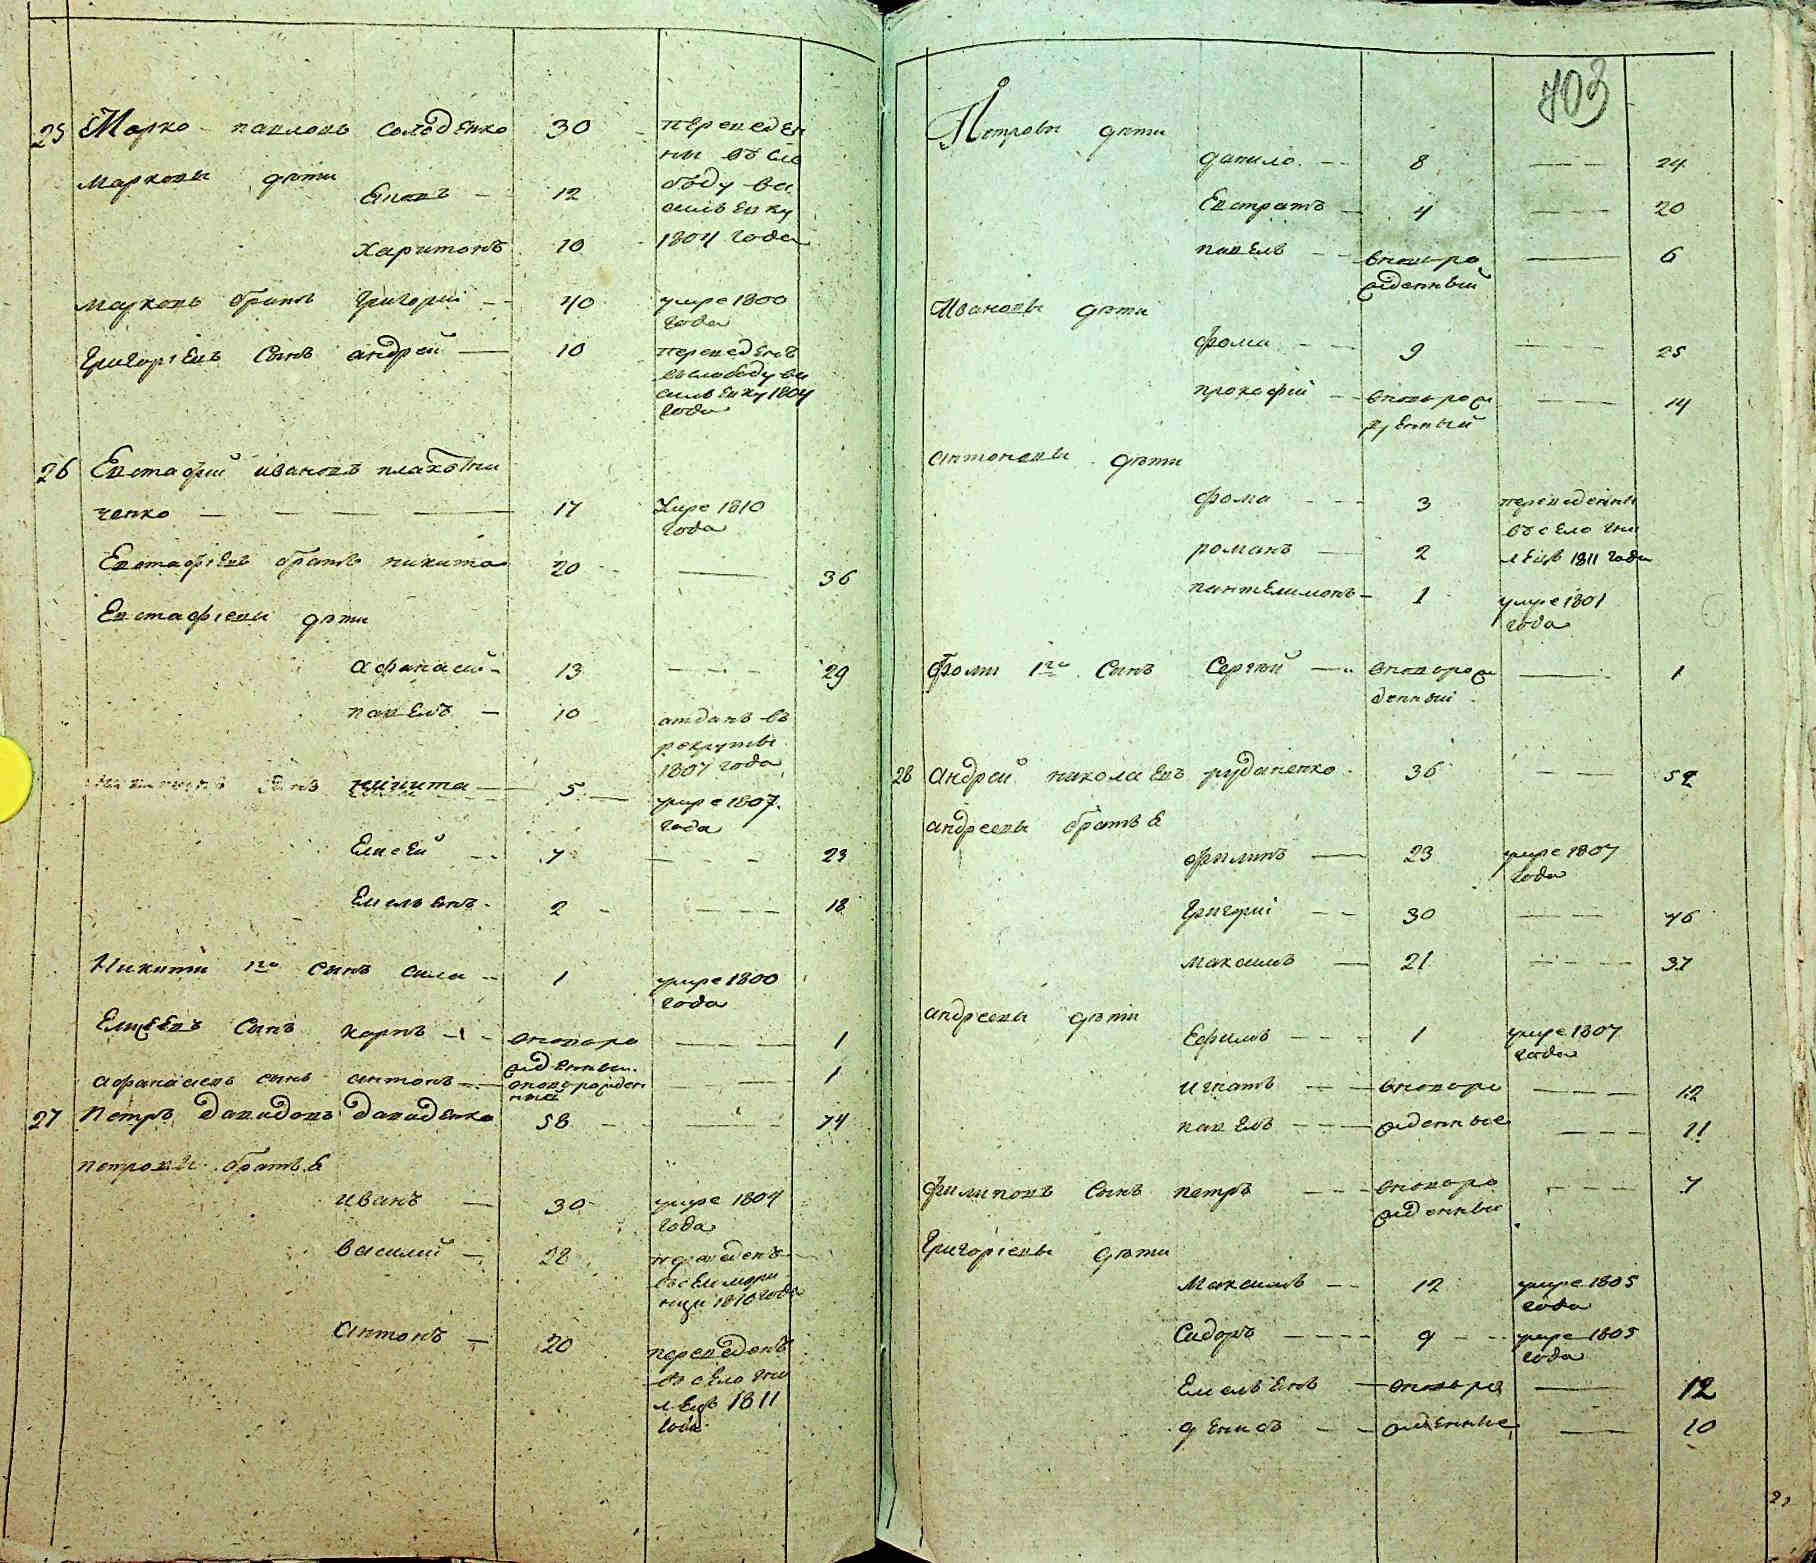 25 Марко павловъ солоденко 30 переведен
ны въ сло
Марковы дѣти боду ва
Яковъ 12 сильевку
Харитонъ 10 1804 года
Марковъ братъ Григорій 40 умре 1800
года
Григоріевъ сынъ андрей 10 переведенъ
въ слободу ва
сильевку 1804
года
26 Евстафій ивановъ плахотни
ченко 17 Умре 1810
года
Евстафіевъ братъ никита 20 36
Евстафіевы дѣти
афанасий 13 29
павелъ 10 отданъ въ
рекруты
1807 года
сынъ никита 5 умре 1807
года
Елисей 7 23
Емельянъ 2 18
Никиты 1го сынъ сила 1 умре 1800
года
Елисѣевъ сынъ карпъ вновъро 1
жденный
афанасиевъ сынъ антонъ вновърожден 1
ный
27 Петръ давидовъ давиденко 58 74
петровы братья
иванъ 30 умре 1804
года
василий 28 переведенъ
1810 года
антонъ 20 переведенъ
въ село гни
лецъ 1811
года
703
Петровы дѣти
данило 8 24
Евстратъ 4 20
павелъ вновъро 6
жденный
Ивановы дѣти
фома 9 25
прокофій вновърож 14
денный
антоновы дѣти
фома 3 переведенны
въ село гни
романъ 2 лецъ 1811 года
пантелимонъ 1 умре 1801
года
Фомы 1го сынъ Сергѣй вновърож 1
денный
28 андрей николаевъ руданенко 36 52
андреевы братья
филипъ 23 умре 1807
года
Григорій 30 46
максимъ 21 37
андреевы дѣти
Ефимъ 1 умре 1807
года
игнатъ вновъро 12
павелъ жденные 11
филиповъ сынъ петръ вновъро 7
жденный
Григоріевы дѣти
Максимъ 12 умре 1805
года
Сидоръ 9 умре 1805
года
Емельянъ вновъро 12
денисъ жденные 10